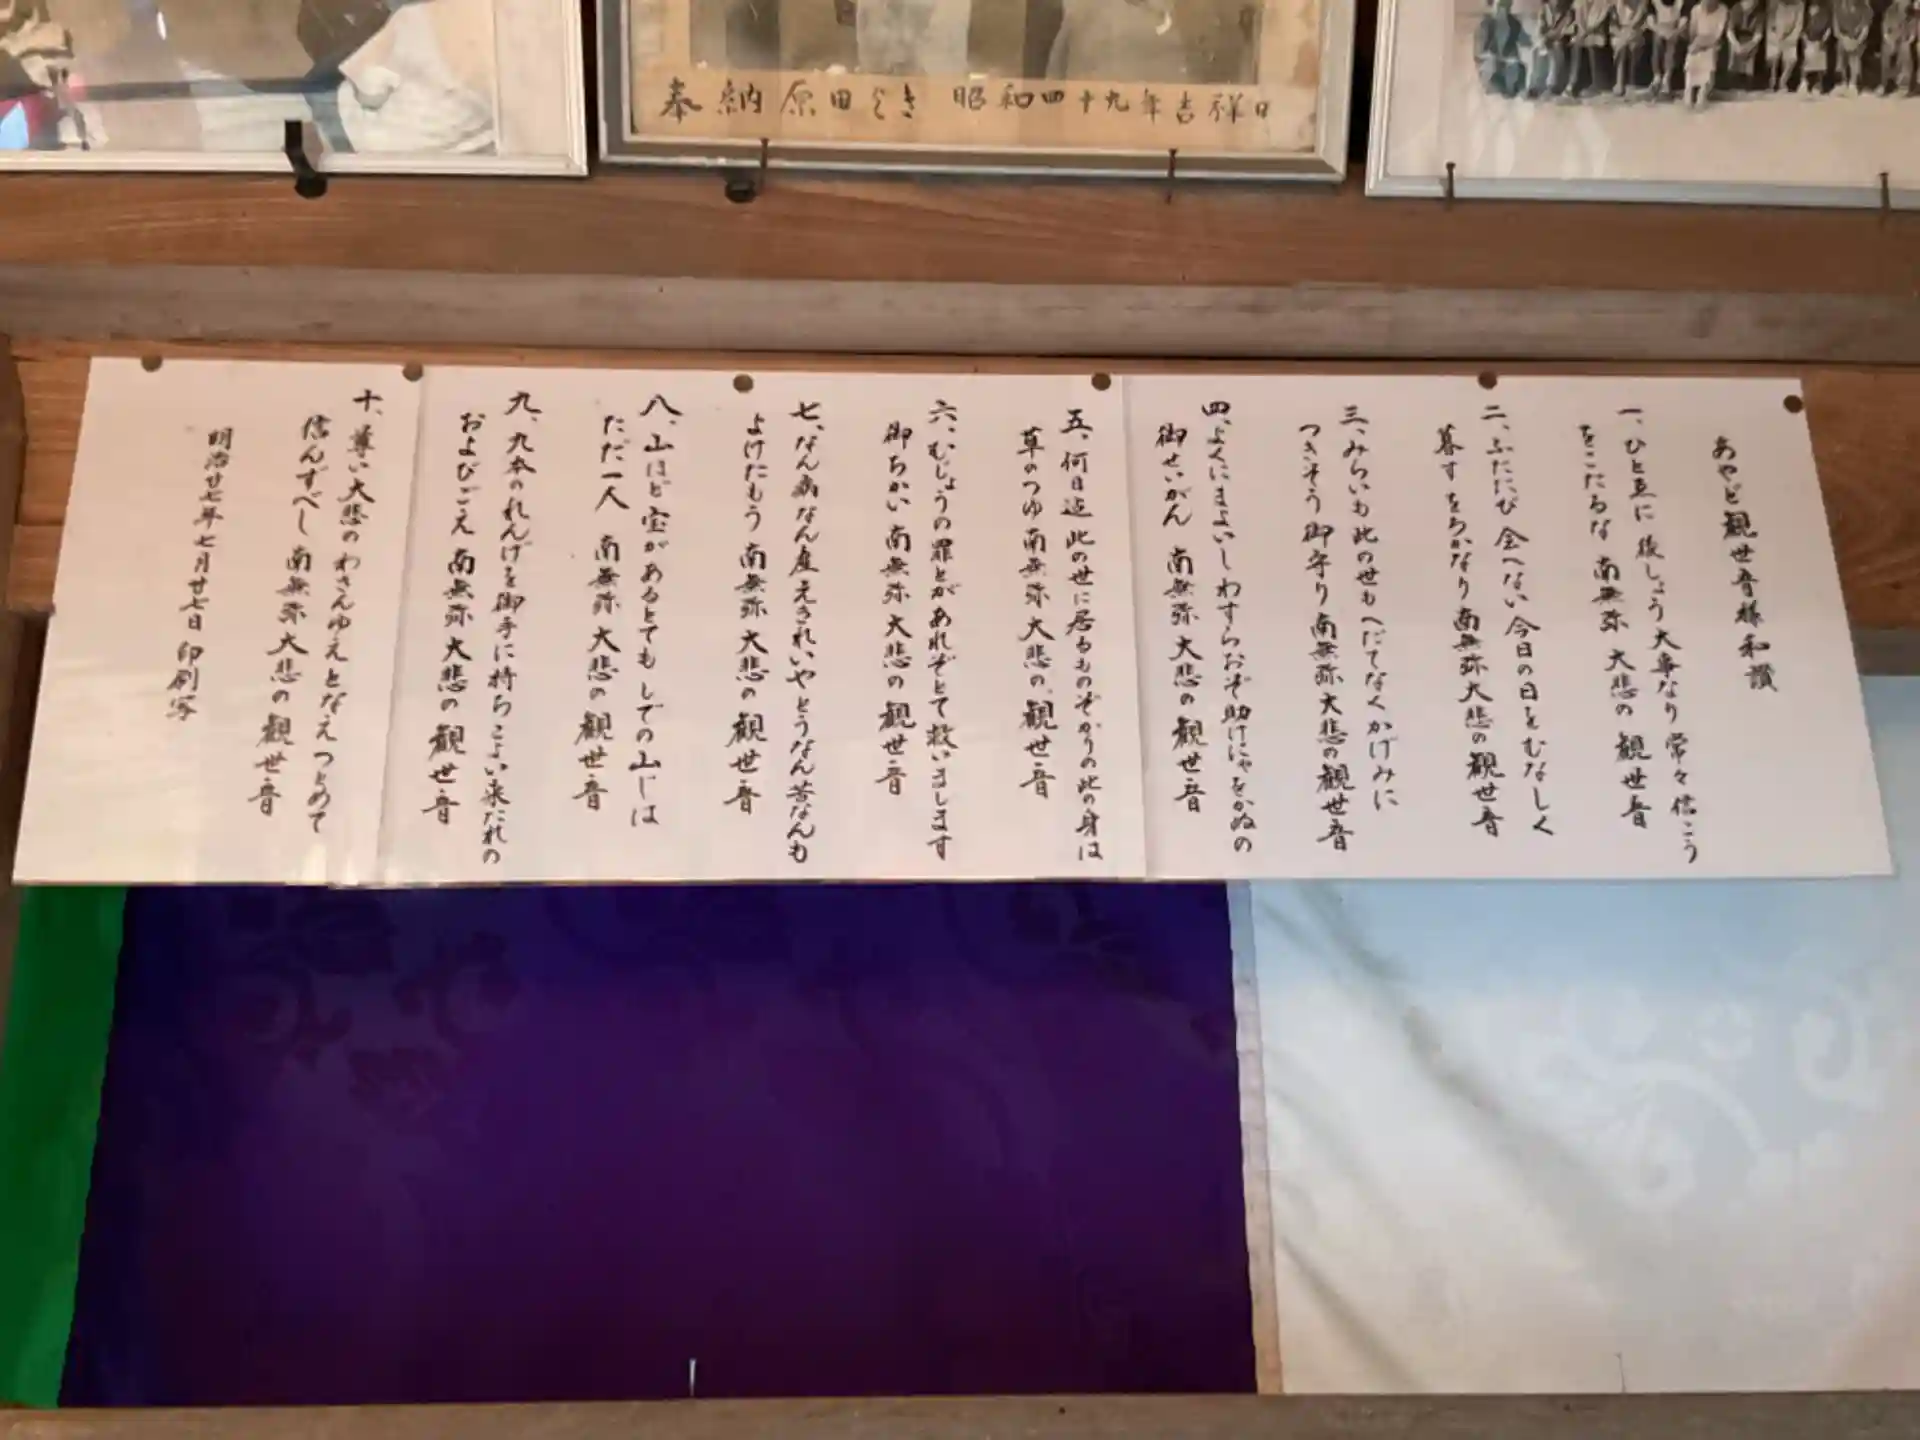 奉納 原田とき 昭和四十九年吉祥日
あやど観世音様和讃
一、ひと並に後しょう大事なり常々信こう
をこたるな 南無弥大悲の観世音
二、ふたたび会へない今日の日をむなしく
暮すをろかなり南無弥大悲の観世音
三、みらいも此の世もへだてなくかげみに
つきそう御守り南無弥大悲の観世音
四、よくにまよいしわすらおぞ助けにゃをかぬの
御せいがん 南無弥大悲の観世音
五、何日迄此の世に居るものぞかりの此の身は
草のつゆ南無弥大悲の観世音
六、むじょうの罪とがあれぞとて救いまします
御ちかい 南無弥大悲の観世音
七、なん病なん産えきれいやとうなん苦なんも
よけたもう 南無弥大悲の観世音
八、山ほど宝があるとてもしでの山じは
ただ一人 南無弥大悲の観世音
九、九本のれんげを御手に持ちこよい来たれの
およびごえ 南無弥大悲の観世音
十、尊い大悲のわさんゆえとなえつとめて
信んずべし南無弥大悲の観世音
明治廿七年七月廿七日 印刷写